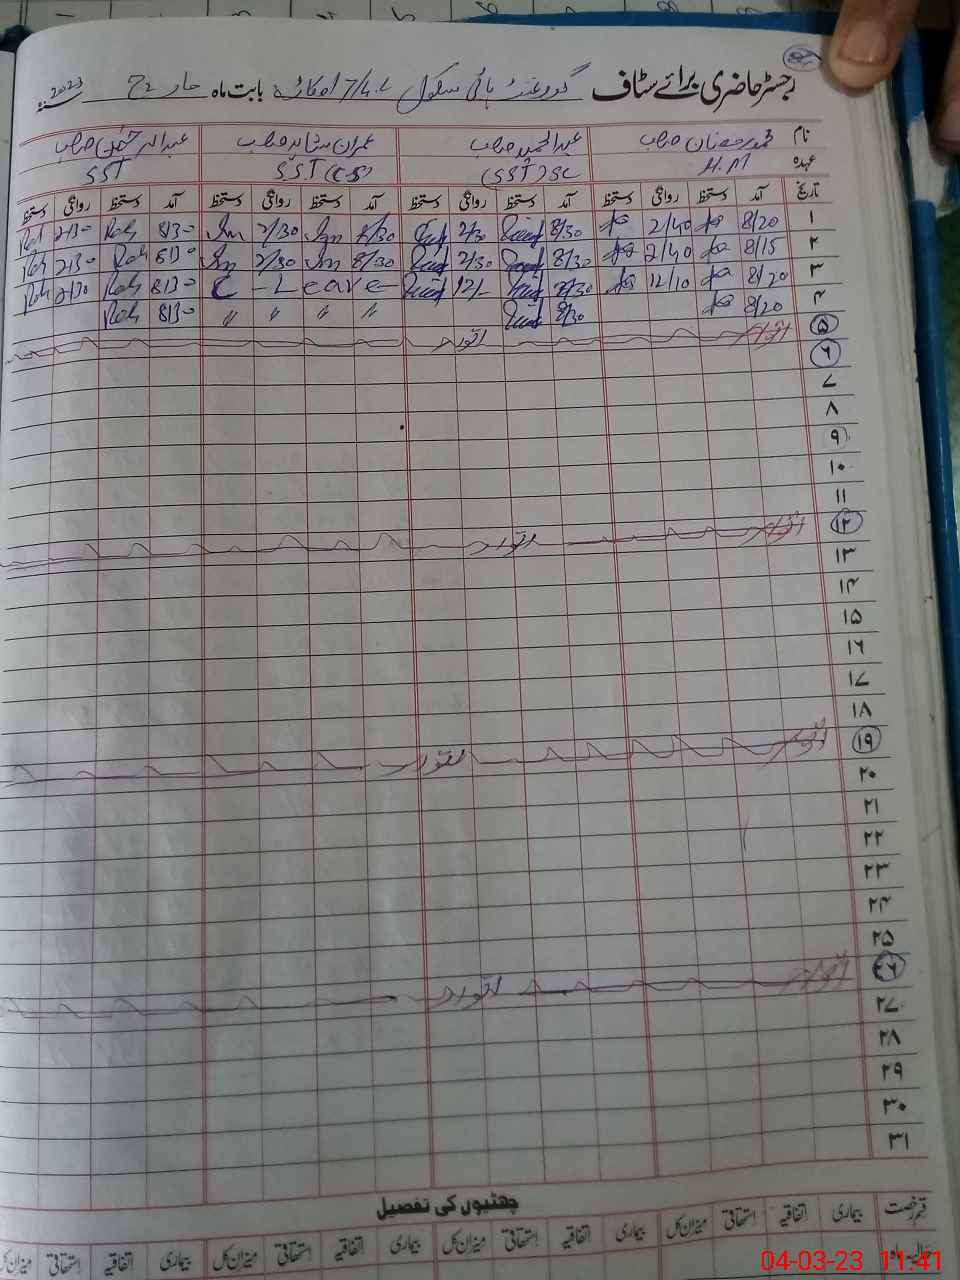 رجسٹر حاضری برائے سٹاف گورنمنٹ ہائی سکول 7/4.L اوکاڑہ بابت ماہ مارچ سنہ 2023ء
نام محمد رمضان صاحب عبدالحمید صاحب عمران شاہد صاحب عبدالرحمٰن صاحب
عہدہ H.M (SST) SC SST (CS) SST
تاریخ آمد دستخط روانگی دستخط آمد دستخط روانگی دستخط آمد دستخط روانگی دستخط آمد دستخط روانگی دستخط
۱ 8/20 2/40 8/30 2/30 8/30 2/30 8/30 2/30
۲ 8/15 2/40 8/30 2/30 8/30 2/30 8/30 2/30
۳ 8/20 12/10 8/30 12/- C - Leave 8/30 2/30
۴ 8/20 8/30 〃 〃 〃 〃 8/30
۵ اتوار اتوار
۶
۷
۸
۹
۱۰
۱۱
۱۲ اتوار اتوار
۱۳
۱۴
۱۵
۱۶
۱۷
۱۸
۱۹ اتوار اتوار
۲۰
۲۱
۲۲
۲۳
۲۴
۲۵
۲۶ اتوار اتوار
۲۷
۲۸
۲۹
۳۰
۳۱
چھٹیوں کی تفصیل
قسم رخصت بیماری اتفاقیہ استحقاقی میزان کل بیماری اتفاقیہ استحقاقی میزان کل بیماری اتفاقیہ استحقاقی میزان کل بیماری اتفاقیہ استحقاقی میزان کل
04-03-23 11:41